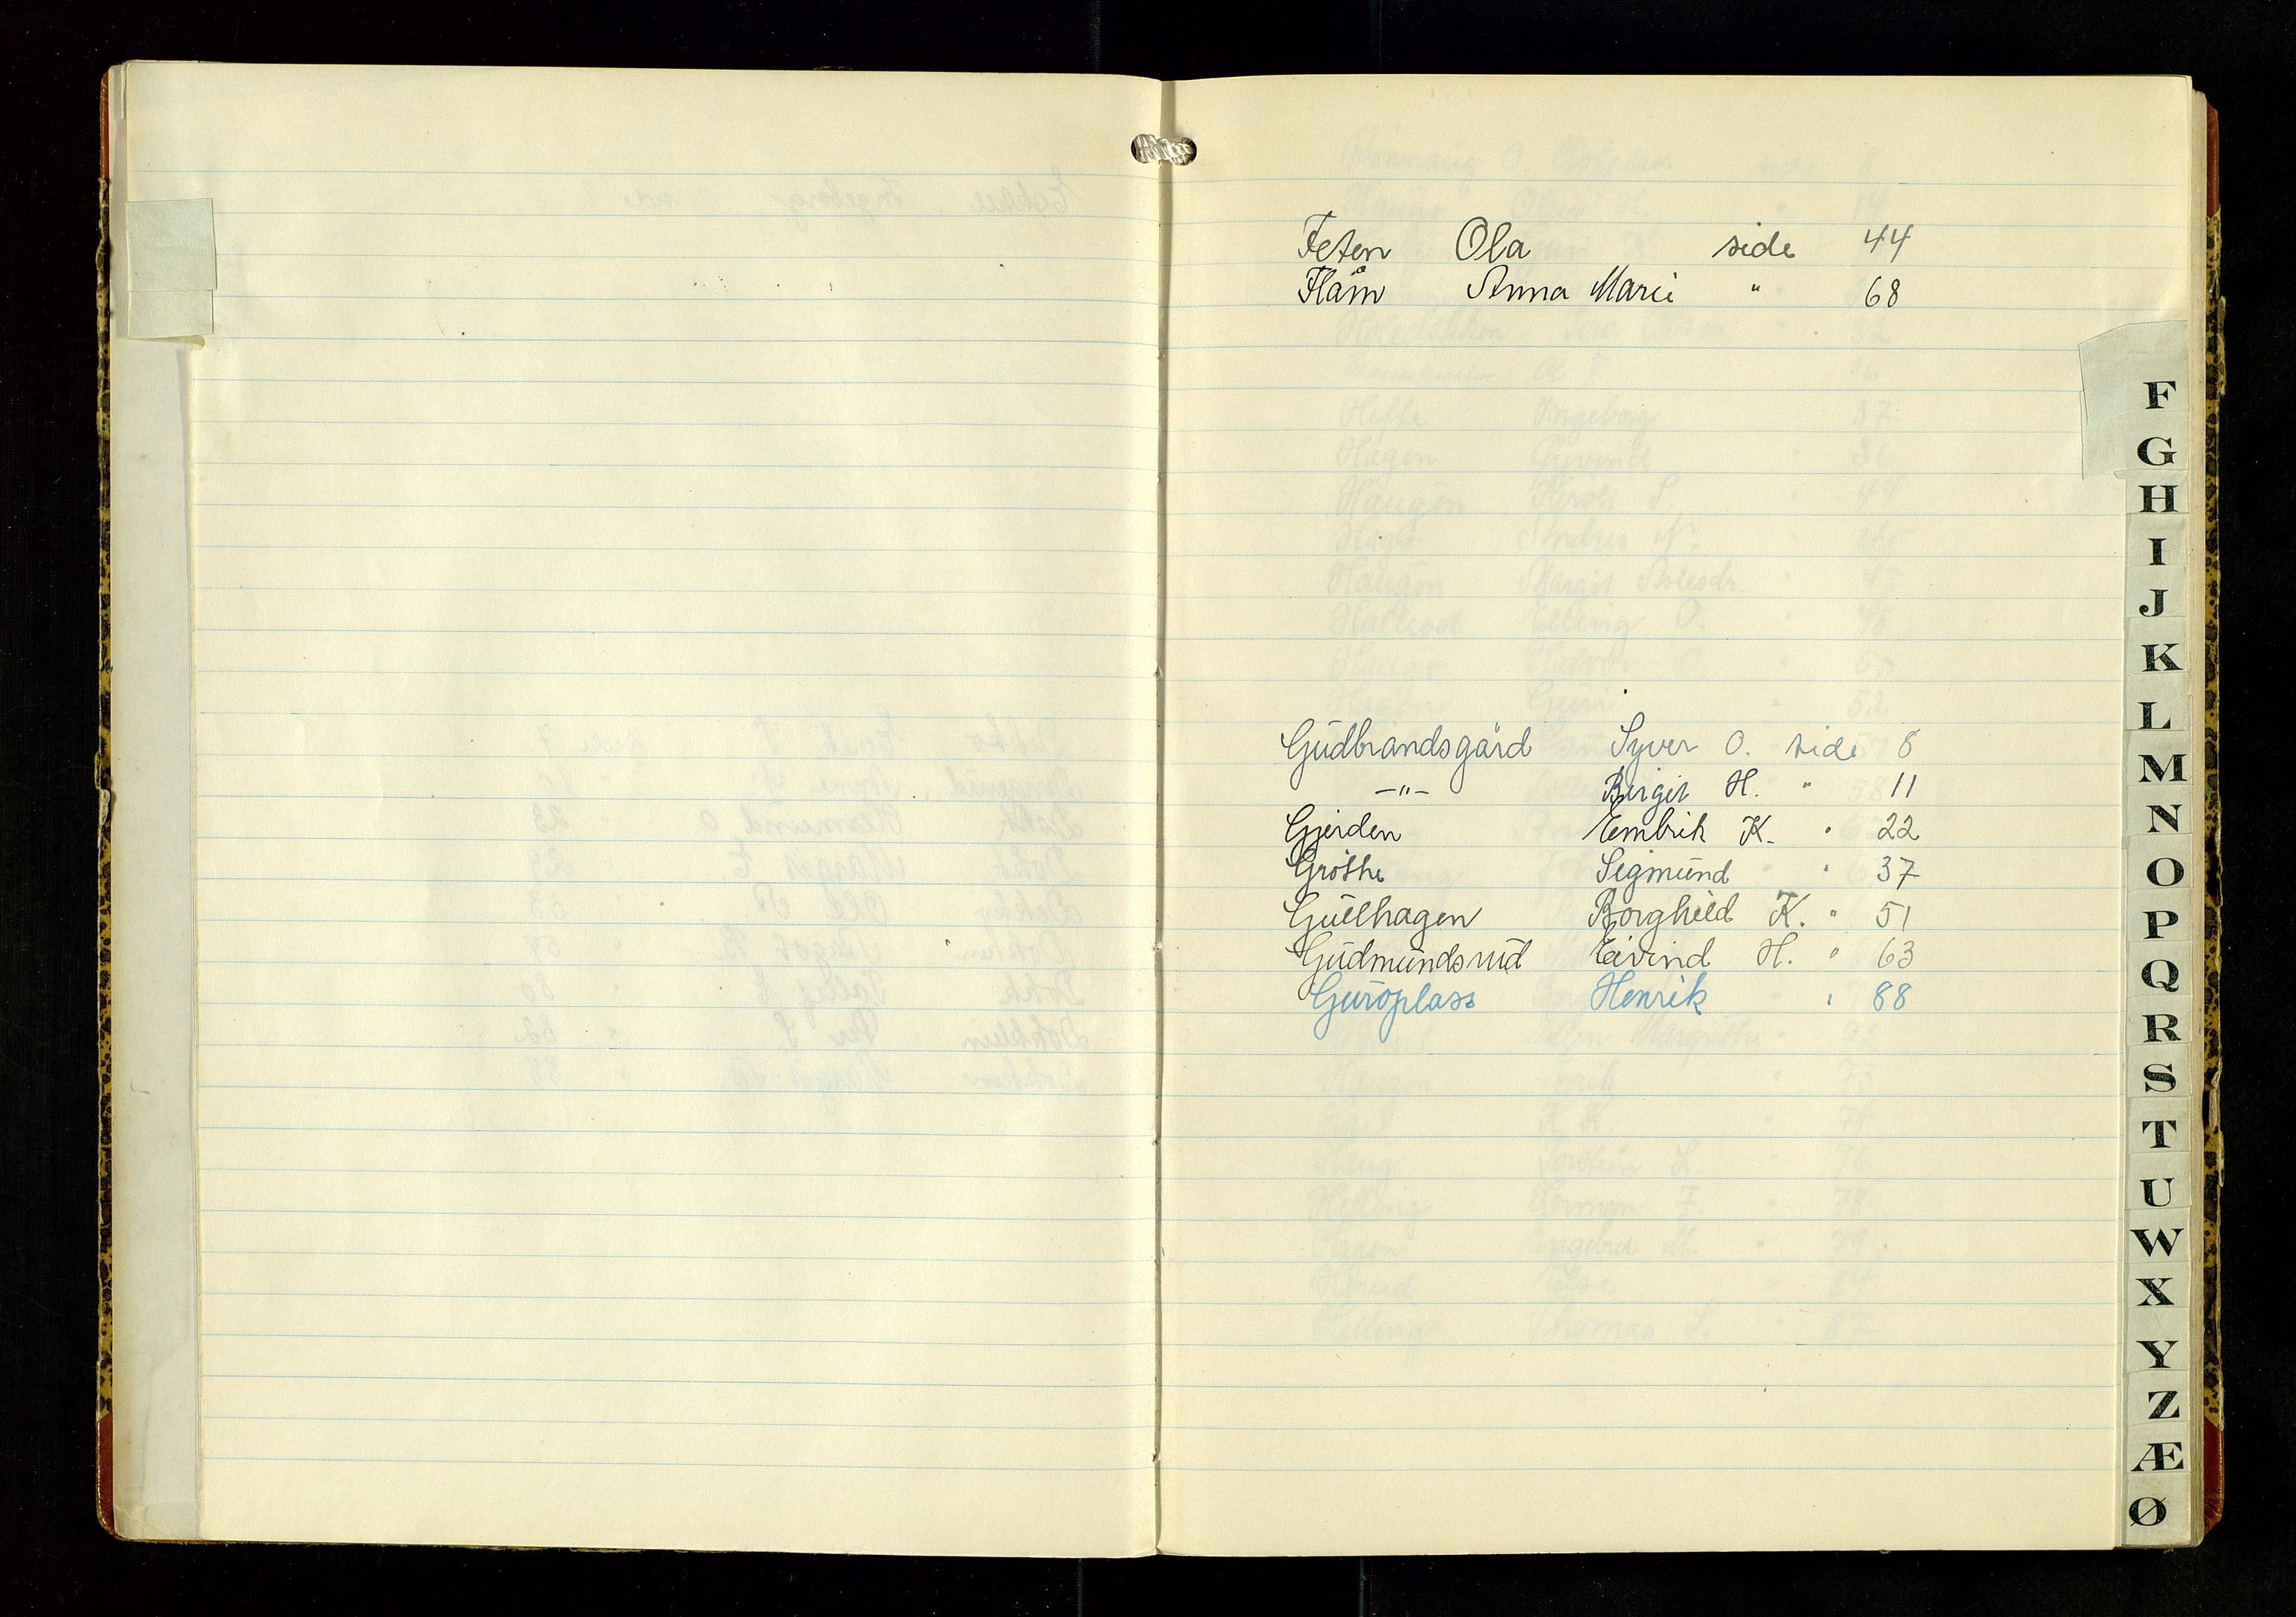 Feten Ola side 44
Flåm Anna Marie " 68
Gudbrandsgård Syver O. side 8
—"— Birgit H. " 11
Gjerden Embrik K. " 22
Grøthe Sigmund " 37
Gullhagen Borghild K. " 51
Gudmundsrud Eivind H. " 63
Guroplass Henrik " 88
F
G
H
I
J
K
L
M
N
O
P
Q
R
S
T
U
W
X
Y
Z
Æ
Ø